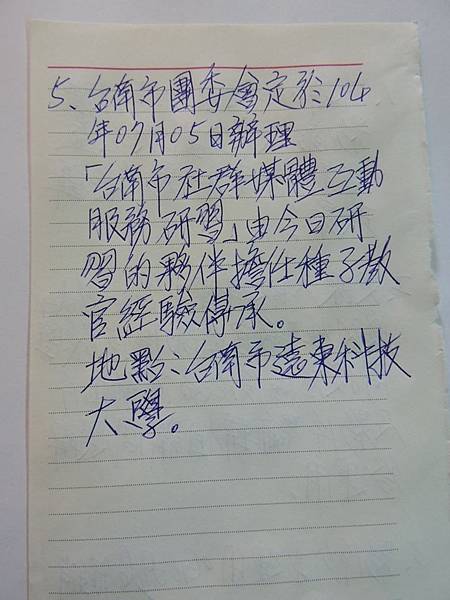 5、台南市團委會定於104
年07月05日辦理
「台南市社群媒體互動
服務研習」由今日研
習的夥伴擔任種子教
官經驗傳承。
地點：台南市遠東科技
大學。